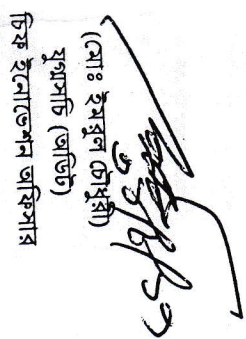 (মোঃ ইমরুল চৌধুরী)
যুগ্মসচিব (অডিট)
চিফ ইনোভেশন অফিসার